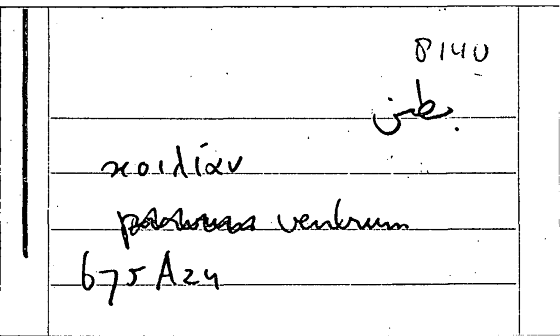 8140
بطن
κοιλίαν
ventrum
675 A24